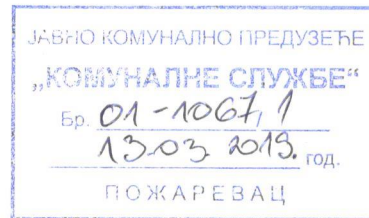 ЈАВНО КОМУНАЛНО ПРЕДУЗЕЋЕ
„КОМУНАЛНЕ СЛУЖБЕ“
Бр. 01-1067/1
13.03. 2019. год.
ПОЖАРЕВАЦ